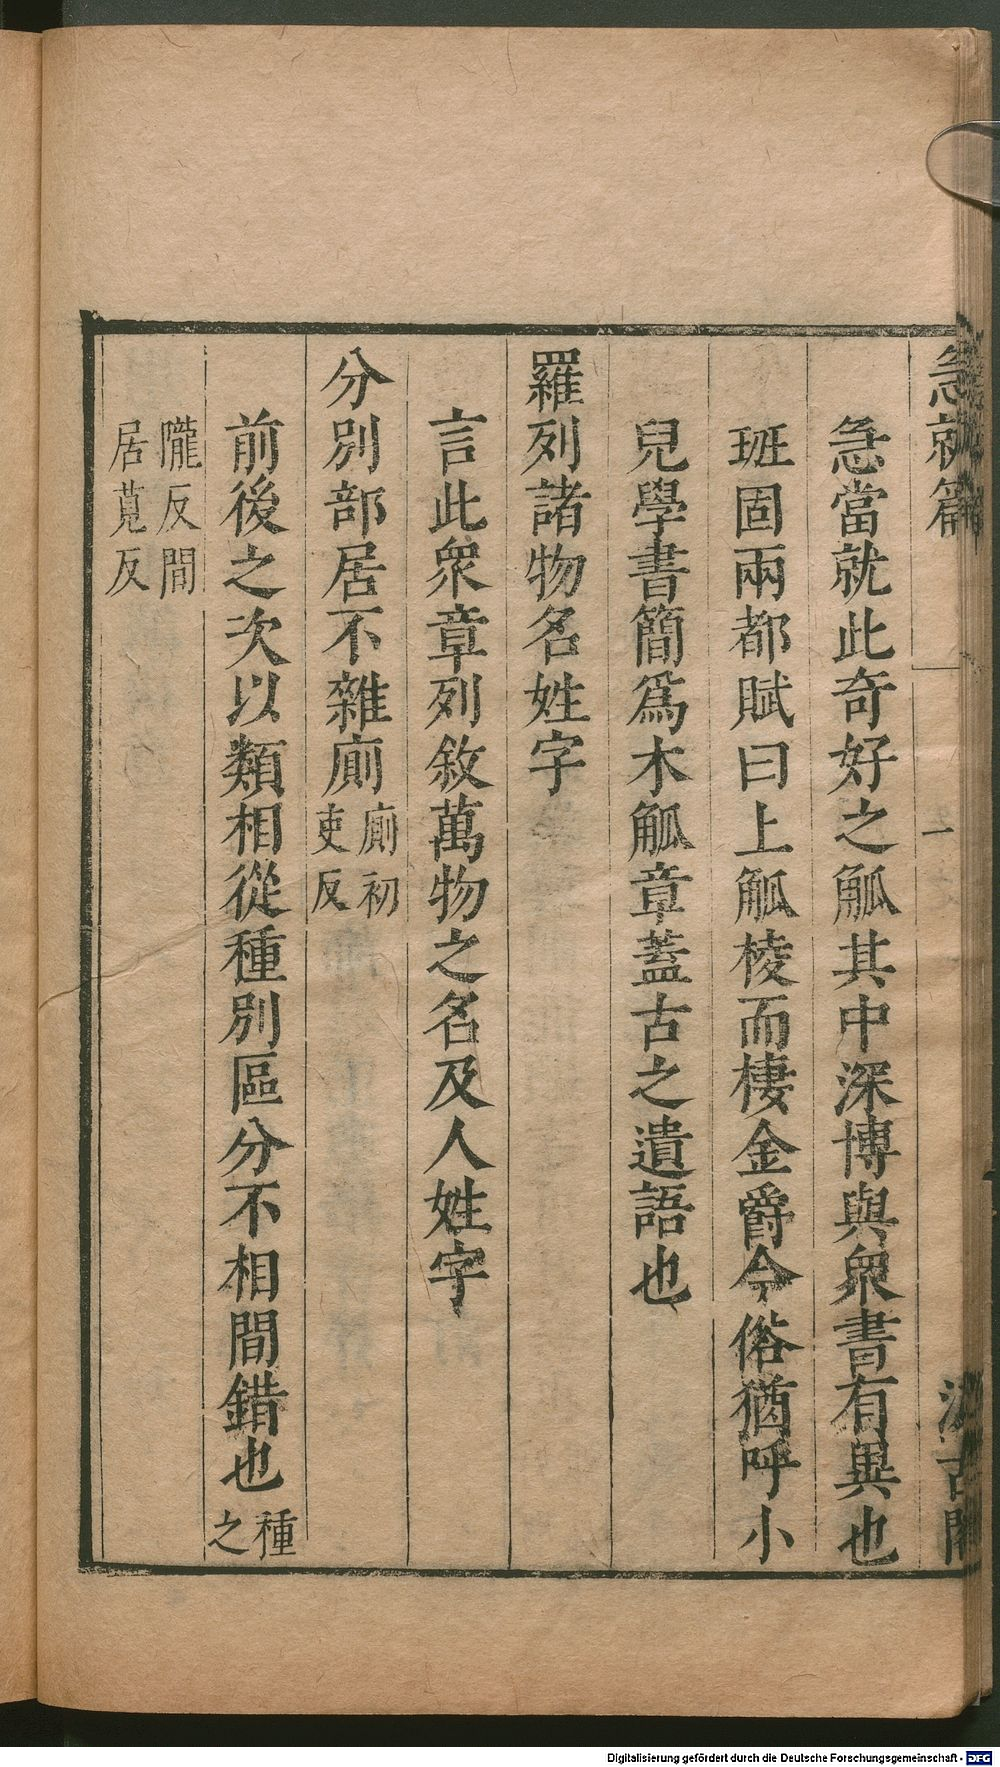 急就篇 一 汲古閣
急當就此奇好之觚其中深博與衆書有異也
班固兩都賦曰上觚棱而棲金爵今俗猶呼小
兒學書簡爲木觚章蓋古之遺語也
羅列諸物名姓字
言此衆章列敘萬物之名及人姓字
分別部居不雜廁廁初吏反
前後之次以類相從種別區分不相間錯也種之
隴反間居莧反
Digitalisierung gefördert durch die Deutsche Forschungsgemeinschaft - DFG